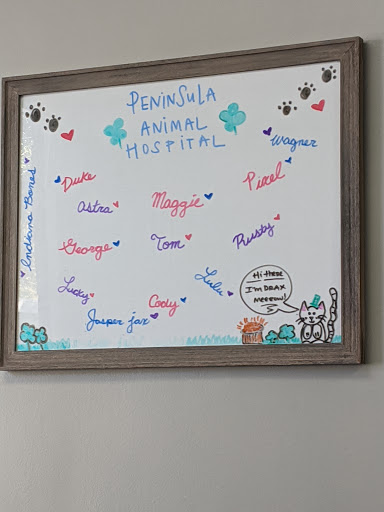 PENINSULA
ANIMAL
HOSPITAL
Wagner
Duke
Pixel
Astra
Maggie
Indiana Bones
George
Tom
Rusty
Lucky
Cody
Lulu
Jasper jax
Hi there
I'm DRAX
MERROW!